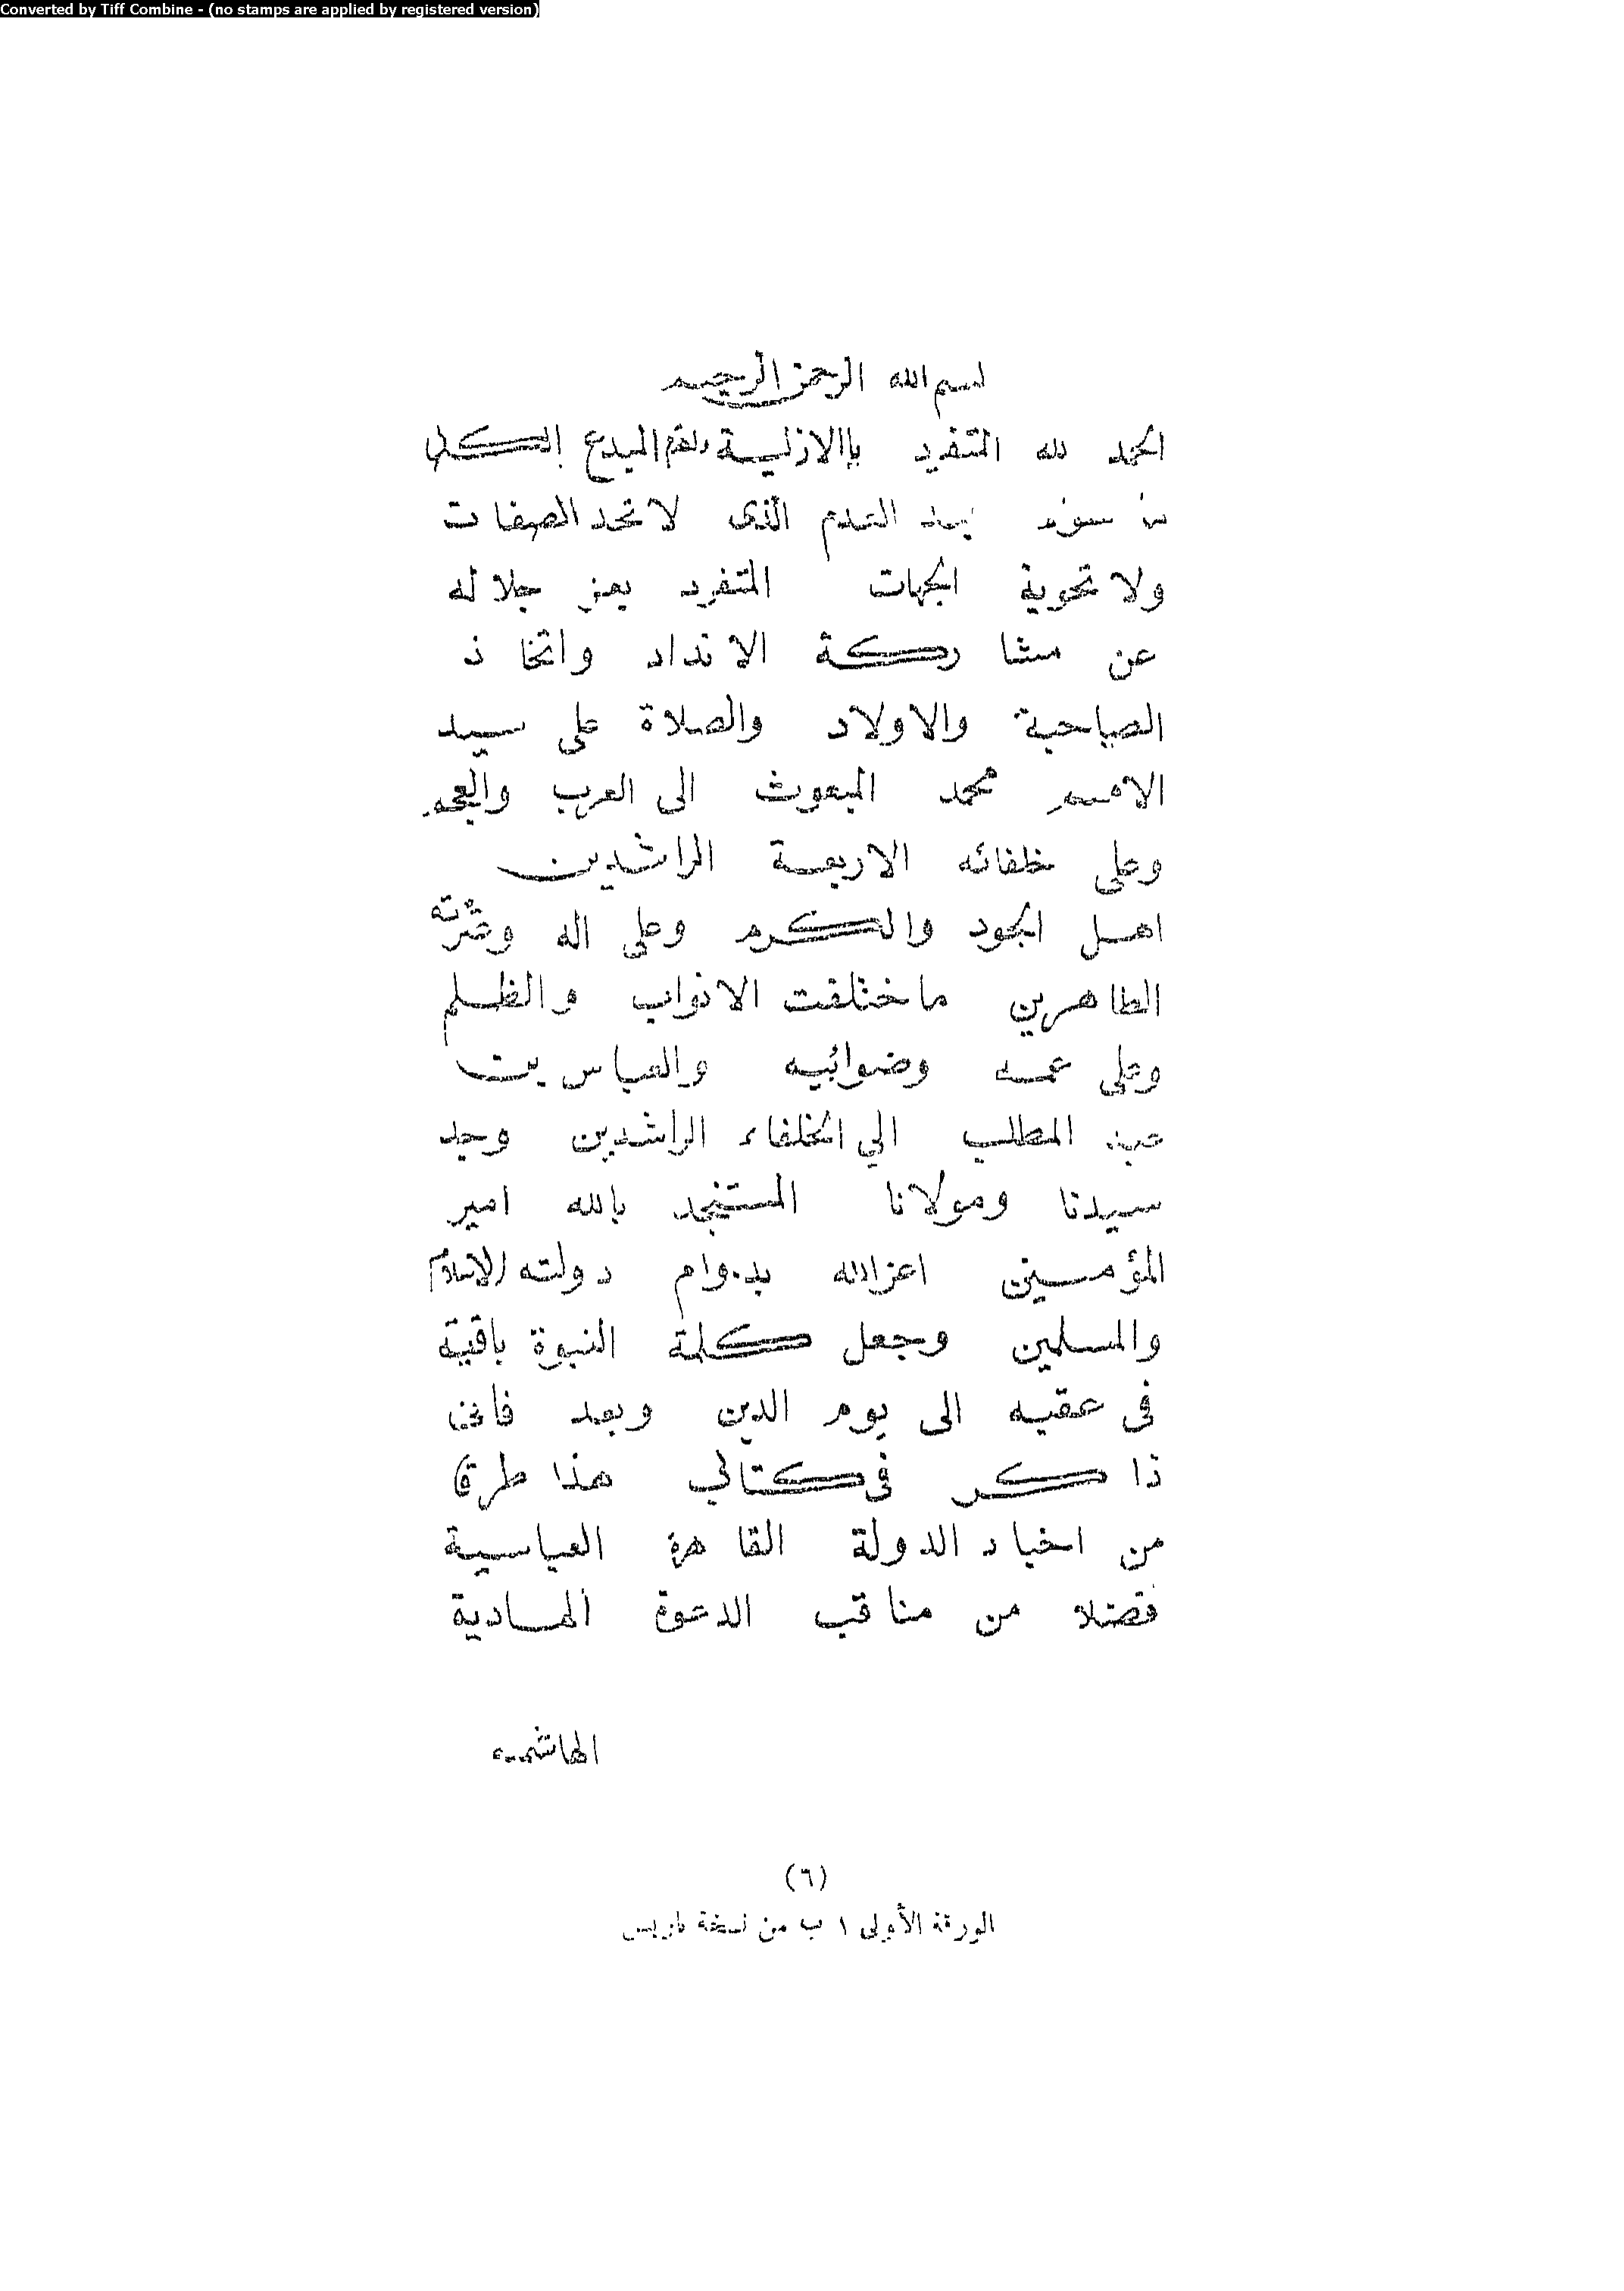 Converted by Tiff Combine - (no stamps are applied by registered version)
بسم الله الرحمن الرحيم
الحمد لله المتفرد بإالازلية والقدم المبدع
العدم الذى لا تحد الصفات
ولا تحوية الجهات المتفرد بعز جلا له
عن مشا ركة الا نداد واتخا ذ
الصاحبة والاولاد والصلاة على سيد
الامم محمد المبعوث الى العرب والعجم
وعلى خلفائه الاربعة الراشدين
اهل الجود والكرم وعلى اله وعترته
الطاهرين ماختلفت الانواب والظلم
وعلى عمه وضوابيه والعباس بن
عبد المطلب الي الخلفاء الراشدين وجد
سيدنا ومولانا المستنجد بالله امير
المؤمنين اعزالله بدوام دولته الاسلام
والمسلمين وجعل كلمة النبوة باقية
فى عقبه الى يوم الدين وبعد فانى
ذا كر فى كتابي هذا طرفا
من اخبار الدولة القا هرة العباسية
فضلا من مناقب الدعوة الهادية
الهاشميه
(٦)
الورقة الأولى ١ ب من نسخة باريس